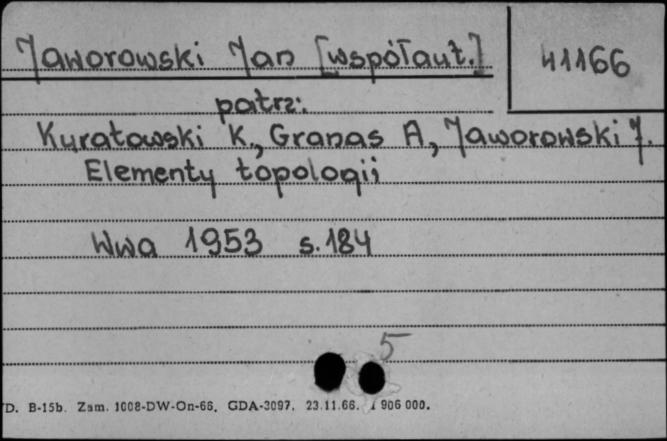 Jaworowski Jan [współaut.]
41166
patrz:
Kuratowski K., Granas A, Jaworowski J.
Elementy topologii
Wwa 1953 s. 184
5
D. B-15b. Zam. 1008-DW-On-66. GDA-3097. 23.11.66. 1 906 000.